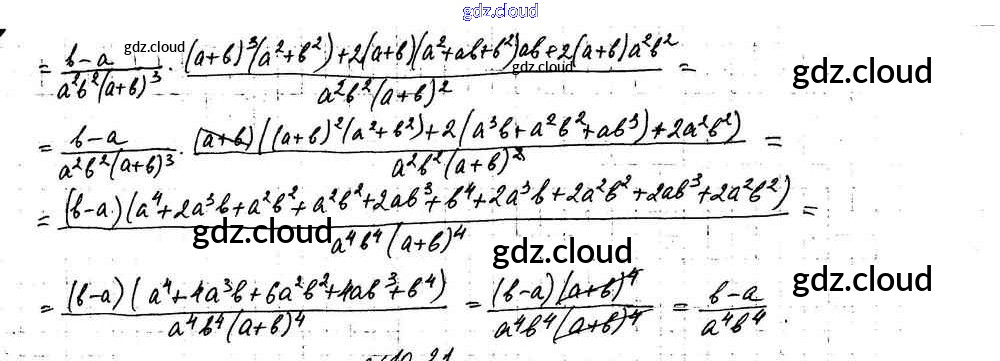 gdz.cloud
= (b-a)/(a²b²(a+b)³) · ((a+b)³(a²+b²)+2(a+b)(a²+ab+b²)ab+2(a+b)a²b²)/(a²b²(a+b)²) =
gdz.cloud gdz.cloud gdz.cloud
= (b-a)/(a²b²(a+b)³) · ((a+b)((a+b)²(a²+b²)+2(a³b+a²b²+ab³)+2a²b²))/(a²b²(a+b)²) =
gdz.cloud
= ((b-a)(a⁴+2a³b+a²b²+a²b²+2ab³+b⁴+2a³b+2a²b²+2ab³+2a²b²))/(a⁴b⁴(a+b)⁴) =
gdz.cloud gdz.cloud
= ((b-a)(a⁴+4a³b+6a²b²+4ab³+b⁴))/(a⁴b⁴(a+b)⁴) = ((b-a)(a+b)⁴)/(a⁴b⁴(a+b)⁴) = (b-a)/(a⁴b⁴).
gdz.cloud